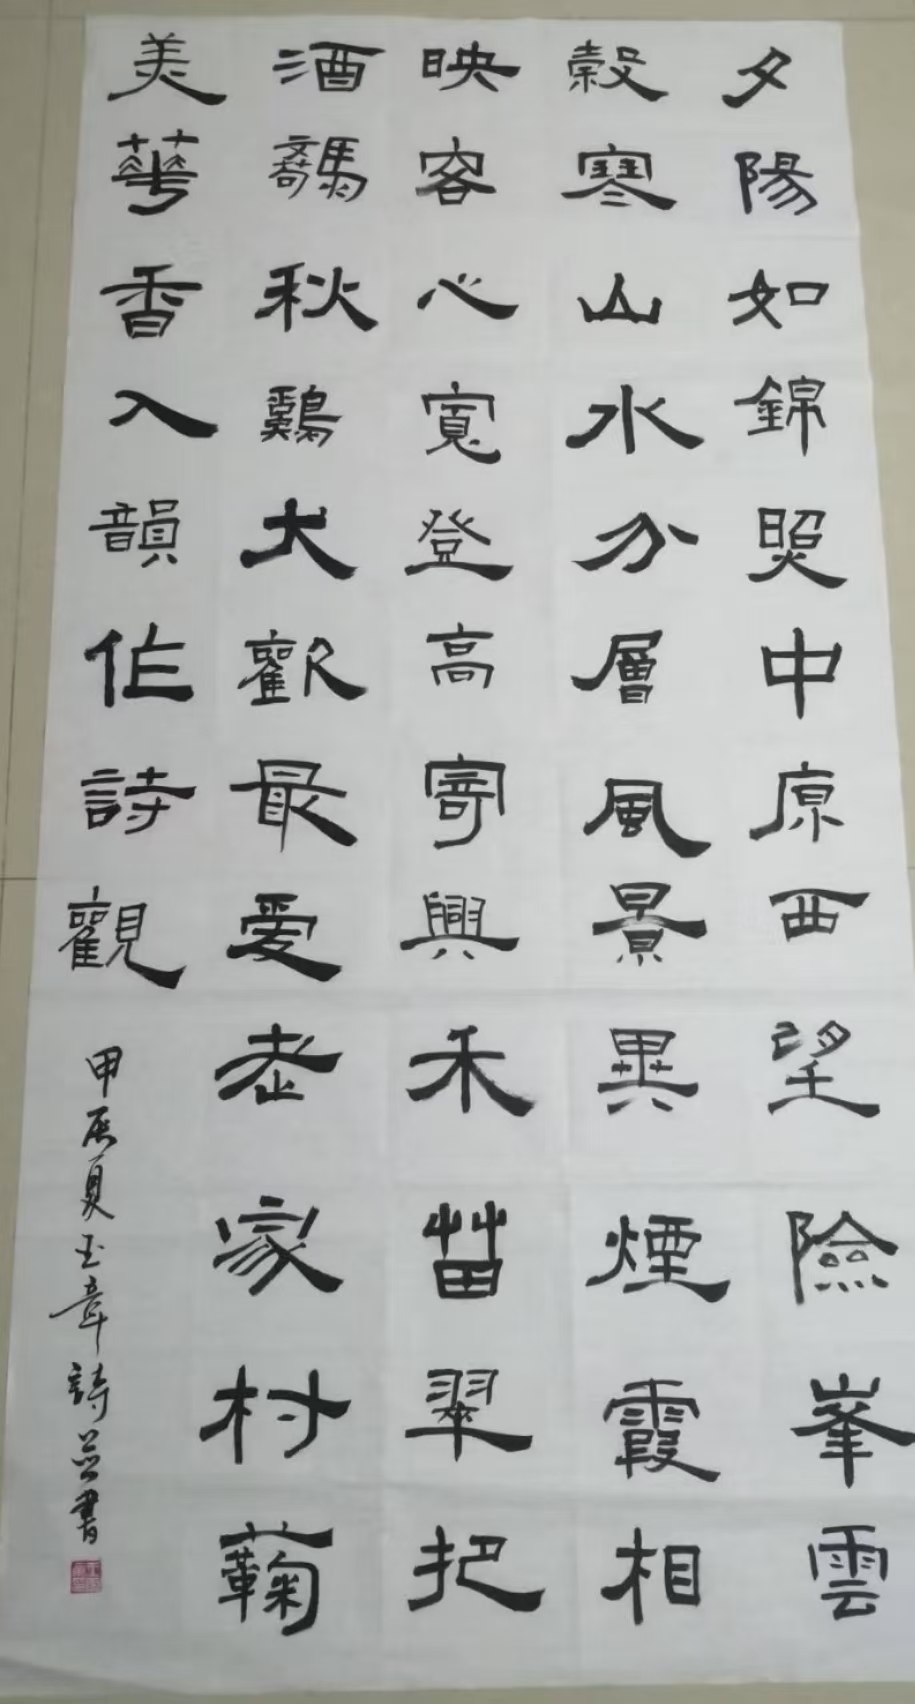 夕陽如錦照中原西望險峯雲
穀寒山水分層風景異煙霞相
映客心寬登高寄興禾苗翠把
酒秋鷄犬歡最爱老家村蘜
美華香入韻作詩觀
甲辰夏玉章詩並書